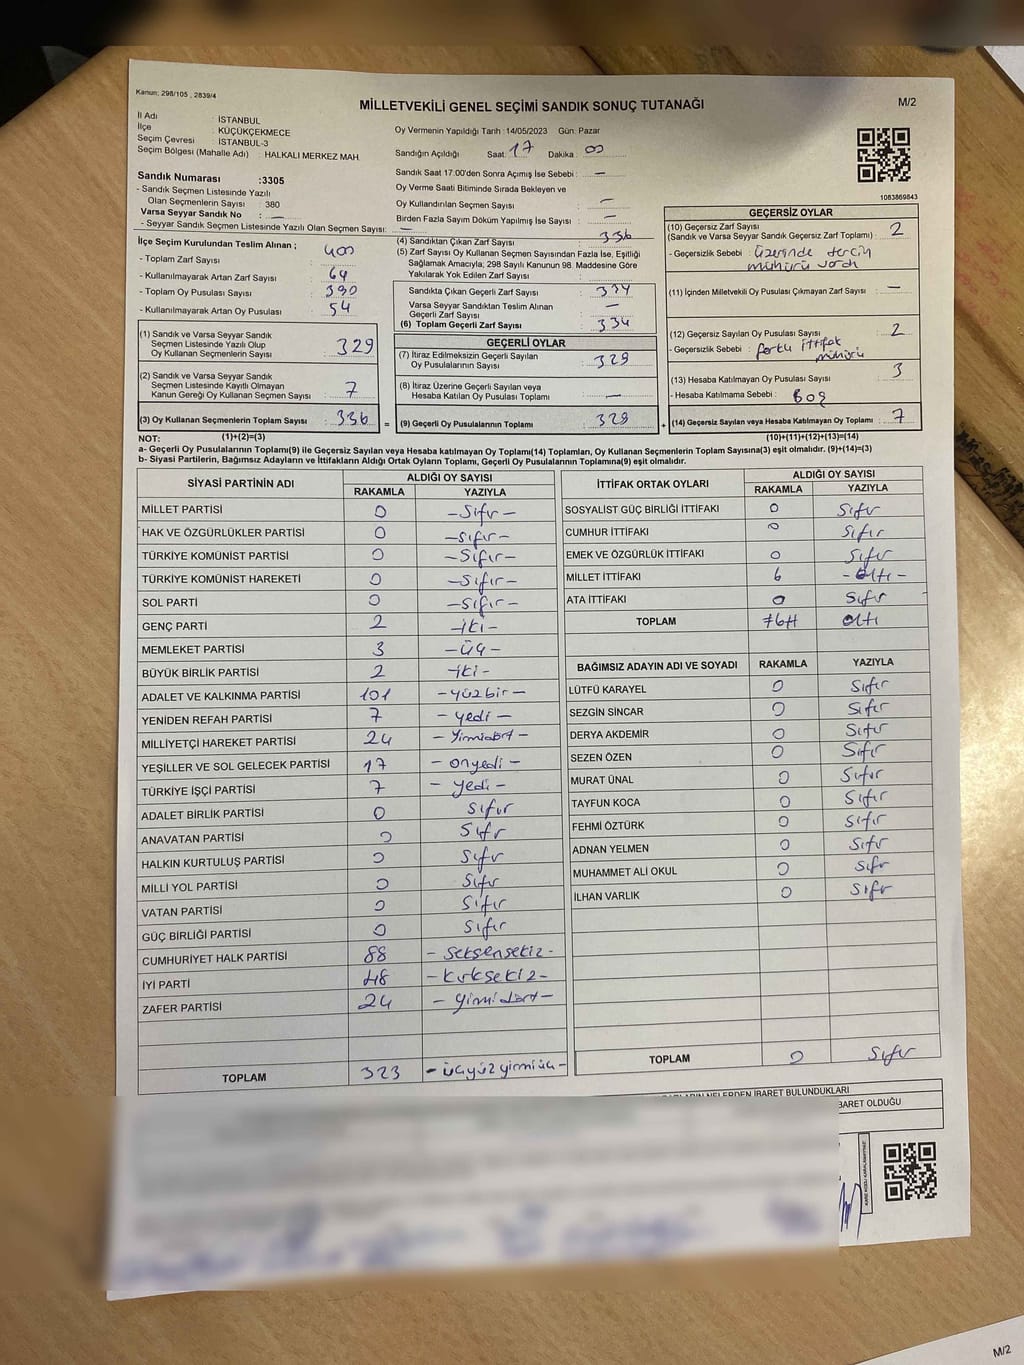 Kanun: 298/105 , 2839/4
MİLLETVEKİLİ GENEL SEÇİMİ SANDIK SONUÇ TUTANAĞI
M/2
İl Adı : İSTANBUL
İlçe : KÜÇÜKÇEKMECE
Seçim Çevresi : İSTANBUL-3
Seçim Bölgesi (Mahalle Adı) : HALKALI MERKEZ MAH.
Sandık Numarası :3305
- Sandık Seçmen Listesinde Yazılı
Olan Seçmenlerin Sayısı : 380
Varsa Seyyar Sandık No : —
- Seyyar Sandık Seçmen Listesinde Yazılı Olan Seçmen Sayısı: —
Oy Vermenin Yapıldığı Tarih :14/05/2023 Gün: Pazar
Sandığın Açıldığı Saat: 17 Dakika : 00
Sandık Saat 17.00'den Sonra Açımış İse Sebebi : —
Oy Verme Saati Bitiminde Sırada Bekleyen ve
Oy Kullandırılan Seçmen Sayısı : —
Birden Fazla Sayım Döküm Yapılmış İse Sayısı : —
1083869843
İlçe Seçim Kurulundan Teslim Alınan ;
- Toplam Zarf Sayısı : 400
-Kullanılmayarak Artan Zarf Sayısı : 64
- Toplam Oy Pusulası Sayısı : 390
- Kullanılmayarak Artan Oy Pusulası : 54
(1) Sandık ve Varsa Seyyar Sandık
Seçmen Listesinde Yazılı Olup
Oy Kullanan Seçmenlerin Sayısı : 329
(2) Sandık ve Varsa Seyyar Sandık
Seçmen Listesinde Kayıtlı Olmayan
Kanun Gereği Oy Kullanan Seçmen Sayısı : 7
(3) Oy Kullanan Seçmenlerin Toplam Sayısı : 336 =
(4) Sandıktan Çıkan Zarf Sayısı : 336
(5) Zarf Sayısı Oy Kullanan Seçmen Sayısından Fazla İse, Eşitliği
Sağlamak Amacıyla; 298 Sayılı Kanunun 98. Maddesine Göre
Yakılarak Yok Edilen Zarf Sayısı :
Sandıkta Çıkan Geçerli Zarf Sayısı : 334
Varsa Seyyar Sandıktan Teslim Alınan
Geçerli Zarf Sayısı : —
(6) Toplam Geçerli Zarf Sayısı : 334
GEÇERLİ OYLAR
(7) İtiraz Edilmeksizin Geçerli Sayılan
Oy Pusulalarının Sayısı : 329
(8) İtiraz Üzerine Geçerli Sayılan veya
Hesaba Katılan Oy Pusulası Toplamı : —
(9) Geçerli Oy Pusulalarının Toplamı : 329 +
GEÇERSİZ OYLAR
(10) Geçersiz Zarf Sayısı
(Sandık ve Varsa Seyyar Sandık Geçersiz Zarf Toplamı) : 2
- Geçersizlik Sebebi : üzerinde tercih
mühürü vardı
(11) İçinden Milletvekili Oy Pusulası Çıkmayan Zarf Sayısı : —
(12) Geçersiz Sayılan Oy Pusulası Sayısı : 2
- Geçersizlik Sebebi : farklı ittifak
mühürü
(13) Hesaba Katılmayan Oy Pusulası Sayısı : 3
- Hesaba Katılmama Sebebi : Boş
(14) Geçersiz Sayılan veya Hesaba Katılmayan Oy Toplamı : 7
NOT: (1)+(2)=(3) (10)+(11)+(12)+(13)=(14)
a- Geçerli Oy Pusulalarının Toplamı(9) ile Geçersiz Sayılan veya Hesaba Katılmayan Oy Toplamı(14) Toplamları, Oy Kullanan Seçmenlerin Toplam Sayısına(3) eşit olmalıdır. (9)+(14)=(3)
b- Siyasi Partilerin, Bağımsız Adayların ve İttifakların Aldığı Ortak Oyların Toplamı, Geçerli Oy Pusulalarının Toplamına(9) eşit olmalıdır.
SİYASİ PARTİNİN ADI ALDIĞI OY SAYISI
RAKAMLA YAZIYLA
MİLLET PARTİSİ 0 -Sıfır-
HAK VE ÖZGÜRLÜKLER PARTİSİ 0 -Sıfır-
TÜRKİYE KOMÜNİST PARTİSİ 0 -Sıfır-
TÜRKİYE KOMÜNİST HAREKETİ 0 -Sıfır-
SOL PARTİ 0 -Sıfır-
GENÇ PARTİ 2 -iki-
MEMLEKET PARTİSİ 3 -Üç-
BÜYÜK BİRLİK PARTİSİ 2 -iki-
ADALET VE KALKINMA PARTİSİ 101 -yüzbir-
YENİDEN REFAH PARTİSİ 7 -yedi-
MİLLİYETÇİ HAREKET PARTİSİ 24 -Yirmidört-
YEŞİLLER VE SOL GELECEK PARTİSİ 17 -onyedi-
TÜRKİYE İŞÇİ PARTİSİ 7 -yedi-
ADALET BİRLİK PARTİSİ 0 Sıfır
ANAVATAN PARTİSİ 0 Sıfır
HALKIN KURTULUŞ PARTİSİ 0 Sıfır
MİLLİ YOL PARTİSİ 0 Sıfır
VATAN PARTİSİ 0 Sıfır
GÜÇ BİRLİĞİ PARTİSİ 0 Sıfır
CUMHURİYET HALK PARTİSİ 88 -Seksensekiz-
İYİ PARTİ 48 -Kırksekiz-
ZAFER PARTİSİ 24 -yirmidört-
TOPLAM 323 -üçyüzyirmiüç-
İTTİFAK ORTAK OYLARI ALDIĞI OY SAYISI
RAKAMLA YAZIYLA
SOSYALİST GÜÇ BİRLİĞİ İTTİFAKI 0 Sıfır
CUMHUR İTTİFAKI 0 Sıfır
EMEK VE ÖZGÜRLÜK İTTİFAKI 0 Sıfır
MİLLET İTTİFAKI 6 -altı-
ATA İTTİFAKI 0 Sıfır
TOPLAM #6# altı
BAĞIMSIZ ADAYIN ADI VE SOYADI RAKAMLA YAZIYLA
LÜTFÜ KARAYEL 0 Sıfır
SEZGİN SİNCAR 0 Sıfır
DERYA AKDEMİR 0 Sıfır
SEZEN ÖZEN 0 Sıfır
MURAT ÜNAL 0 Sıfır
TAYFUN KOCA 0 Sıfır
FEHMİ ÖZTÜRK 0 Sıfır
ADNAN YELMEN 0 Sıfır
MUHAMMET ALİ OKUL 0 Sıfır
İLHAN VARLIK 0 Sıfır
TOPLAM 0 Sıfır
NELERDEN İBARET BULUNDUKLARI
BARET OLDUĞU
M/2